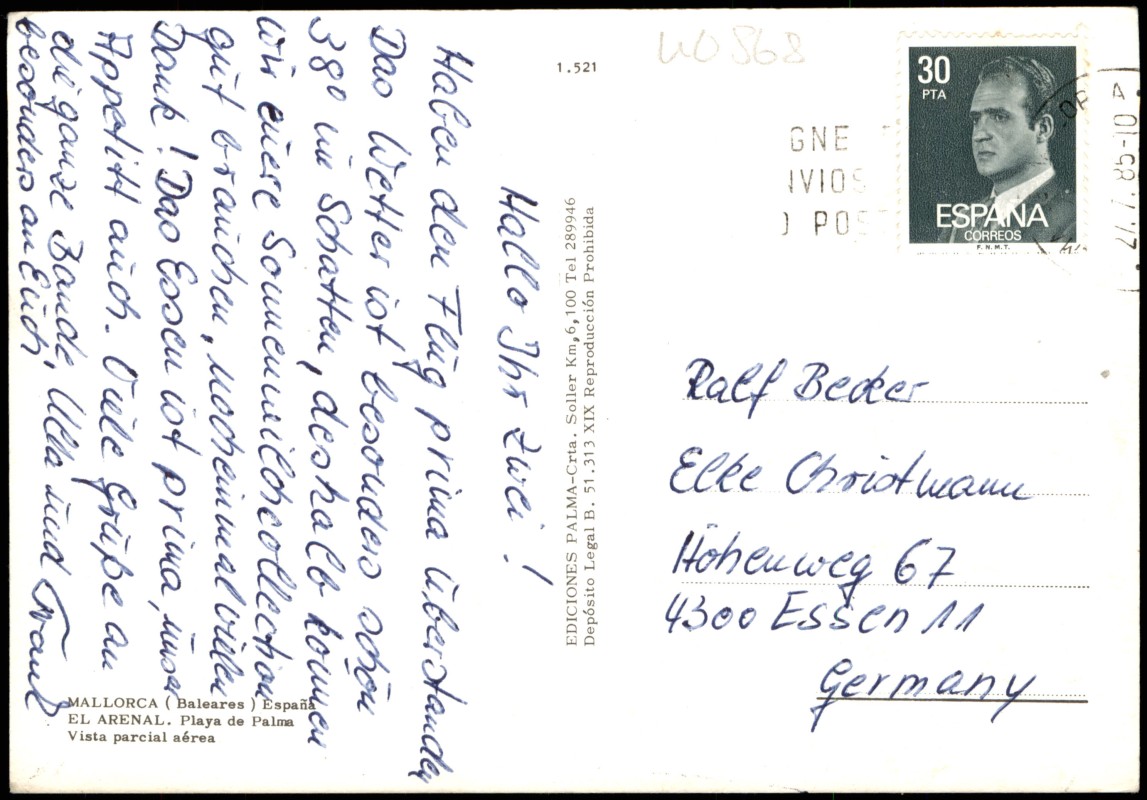 Hallo Ihr zwei!
Haben den Flug prima überstanden
Das Wetter ist besonders schön
38° im Schatten, deshalb können
wir eüere Sonnenmilchcollection
güt braüchen, nocheinmal vielen
Dank! Das Essen ist prima, ünser
Appetitt aüch. Viele Grüße an
die ganze Bande,
besonders an Eüch, Ulla ünd Frank
MALLORCA (Baleares) España
EL ARENAL. Playa de Palma
Vista parcial aérea
1.521
EDICIONES PALMA-Crta. Soller Km,6,100 Tel 289946
Depósito Legal B. 51.313 XIX Reproducción Prohibida
UO568
30
PTA
ESPAÑA
CORREOS
F.N.M.T.
GNE
IVIOS
O POS
Ralf Becker
Elke Christmann
Höhenweg 67
4300 Essen 11
Germany